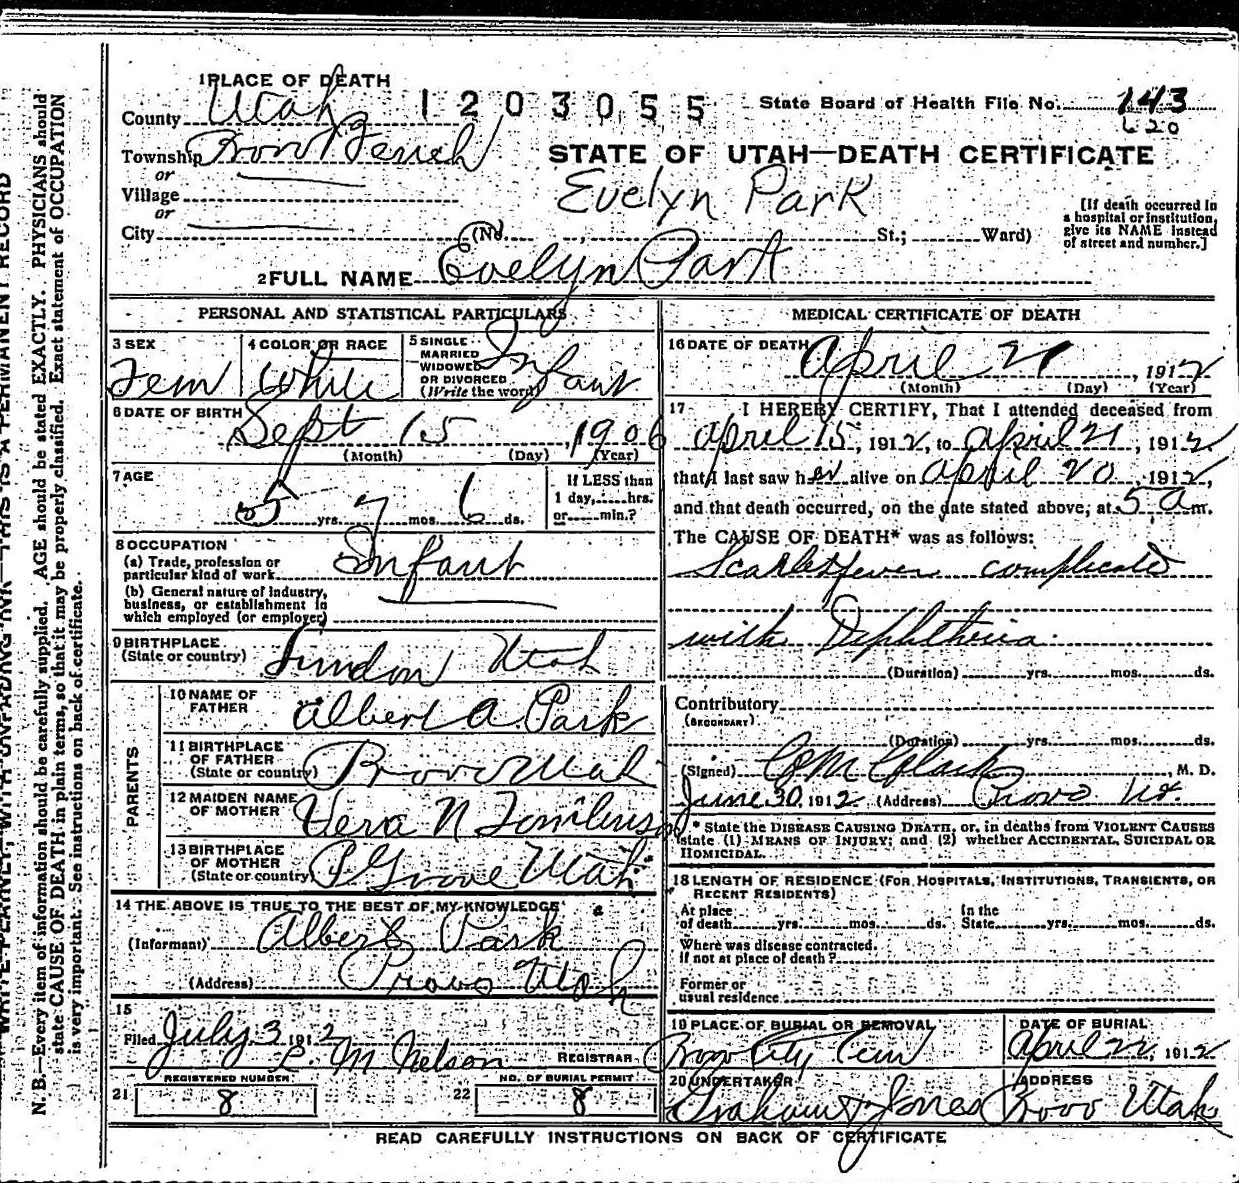 1 PLACE OF DEATH
County Utah 1203055 State Board of Health File No. 143
620
Township Provo Bench STATE OF UTAH—DEATH CERTIFICATE
or
Village Evelyn Park
or
City (No. St.; Ward)
[If death occurred in
a hospital or institution,
give its NAME instead
of street and number.]
2 FULL NAME Evelyn Park
PERSONAL AND STATISTICAL PARTICULARS
3 SEX
Fem
4 COLOR OR RACE
White
5 SINGLE
MARRIED
WIDOWED
OR DIVORCED
(Write the word)
Infant
6 DATE OF BIRTH
Sept 15, 1906
(Month) (Day) (Year)
7 AGE
5 yrs. 7 mos. 6 ds.
If LESS than
1 day, hrs.
or min.?
8 OCCUPATION
(a) Trade, profession or
particular kind of work Infant
(b) General nature of industry,
business, or establishment in
which employed (or employer)
9 BIRTHPLACE
(State or country) Lindon Utah
PARENTS
10 NAME OF
FATHER Albert A. Park
11 BIRTHPLACE
OF FATHER
(State or country) Provo Utah
12 MAIDEN NAME
OF MOTHER Vera N Tomlinson
13 BIRTHPLACE
OF MOTHER
(State or country) P Grove Utah
14 THE ABOVE IS TRUE TO THE BEST OF MY KNOWLEDGE
(Informant) Albert Park
(Address) Provo Utah
15
Filed July 3 1912 L. M Nelson REGISTRAR
REGISTERED NUMBER
21 8
NO. OF BURIAL PERMIT
22 8
MEDICAL CERTIFICATE OF DEATH
16 DATE OF DEATH
April 21, 1912
(Month) (Day) (Year)
17 I HEREBY CERTIFY, That I attended deceased from
April 15, 1912, to April 21, 1912,
that I last saw her alive on April 20, 1912,
and that death occurred, on the date stated above, at 5 a m.
The CAUSE OF DEATH* was as follows:
Scarlet fever complicated
with Diphtheria
(Duration) yrs. mos. ds.
Contributory
(SECONDARY)
(Duration) yrs. mos. ds.
(Signed) G M Clark, M. D.
June 30, 1912 (Address) Provo Ut.
* State the DISEASE CAUSING DEATH, or, in deaths from VIOLENT CAUSES
state (1) MEANS OF INJURY; and (2) whether ACCIDENTAL, SUICIDAL OR
HOMICIDAL.
18 LENGTH OF RESIDENCE (FOR HOSPITALS, INSTITUTIONS, TRANSIENTS, OR
RECENT RESIDENTS)
At place
of death yrs. mos. ds.
In the
State yrs. mos. ds.
Where was disease contracted.
If not at place of death?
Former or
usual residence
19 PLACE OF BURIAL OR REMOVAL
Provo City Cem
DATE OF BURIAL
April 22, 1912
20 UNDERTAKER
Graham & Jones
ADDRESS
Provo Utah
READ CAREFULLY INSTRUCTIONS ON BACK OF CERTIFICATE
WRITE PLAINLY, WITH UNFADING INK—THIS IS A PERMANENT RECORD
N. B.—Every item of information should be carefully supplied. AGE should be stated EXACTLY. PHYSICIANS should
state CAUSE OF DEATH in plain terms, so that it may be properly classified. Exact statement of OCCUPATION
is very important. See instructions on back of certificate.